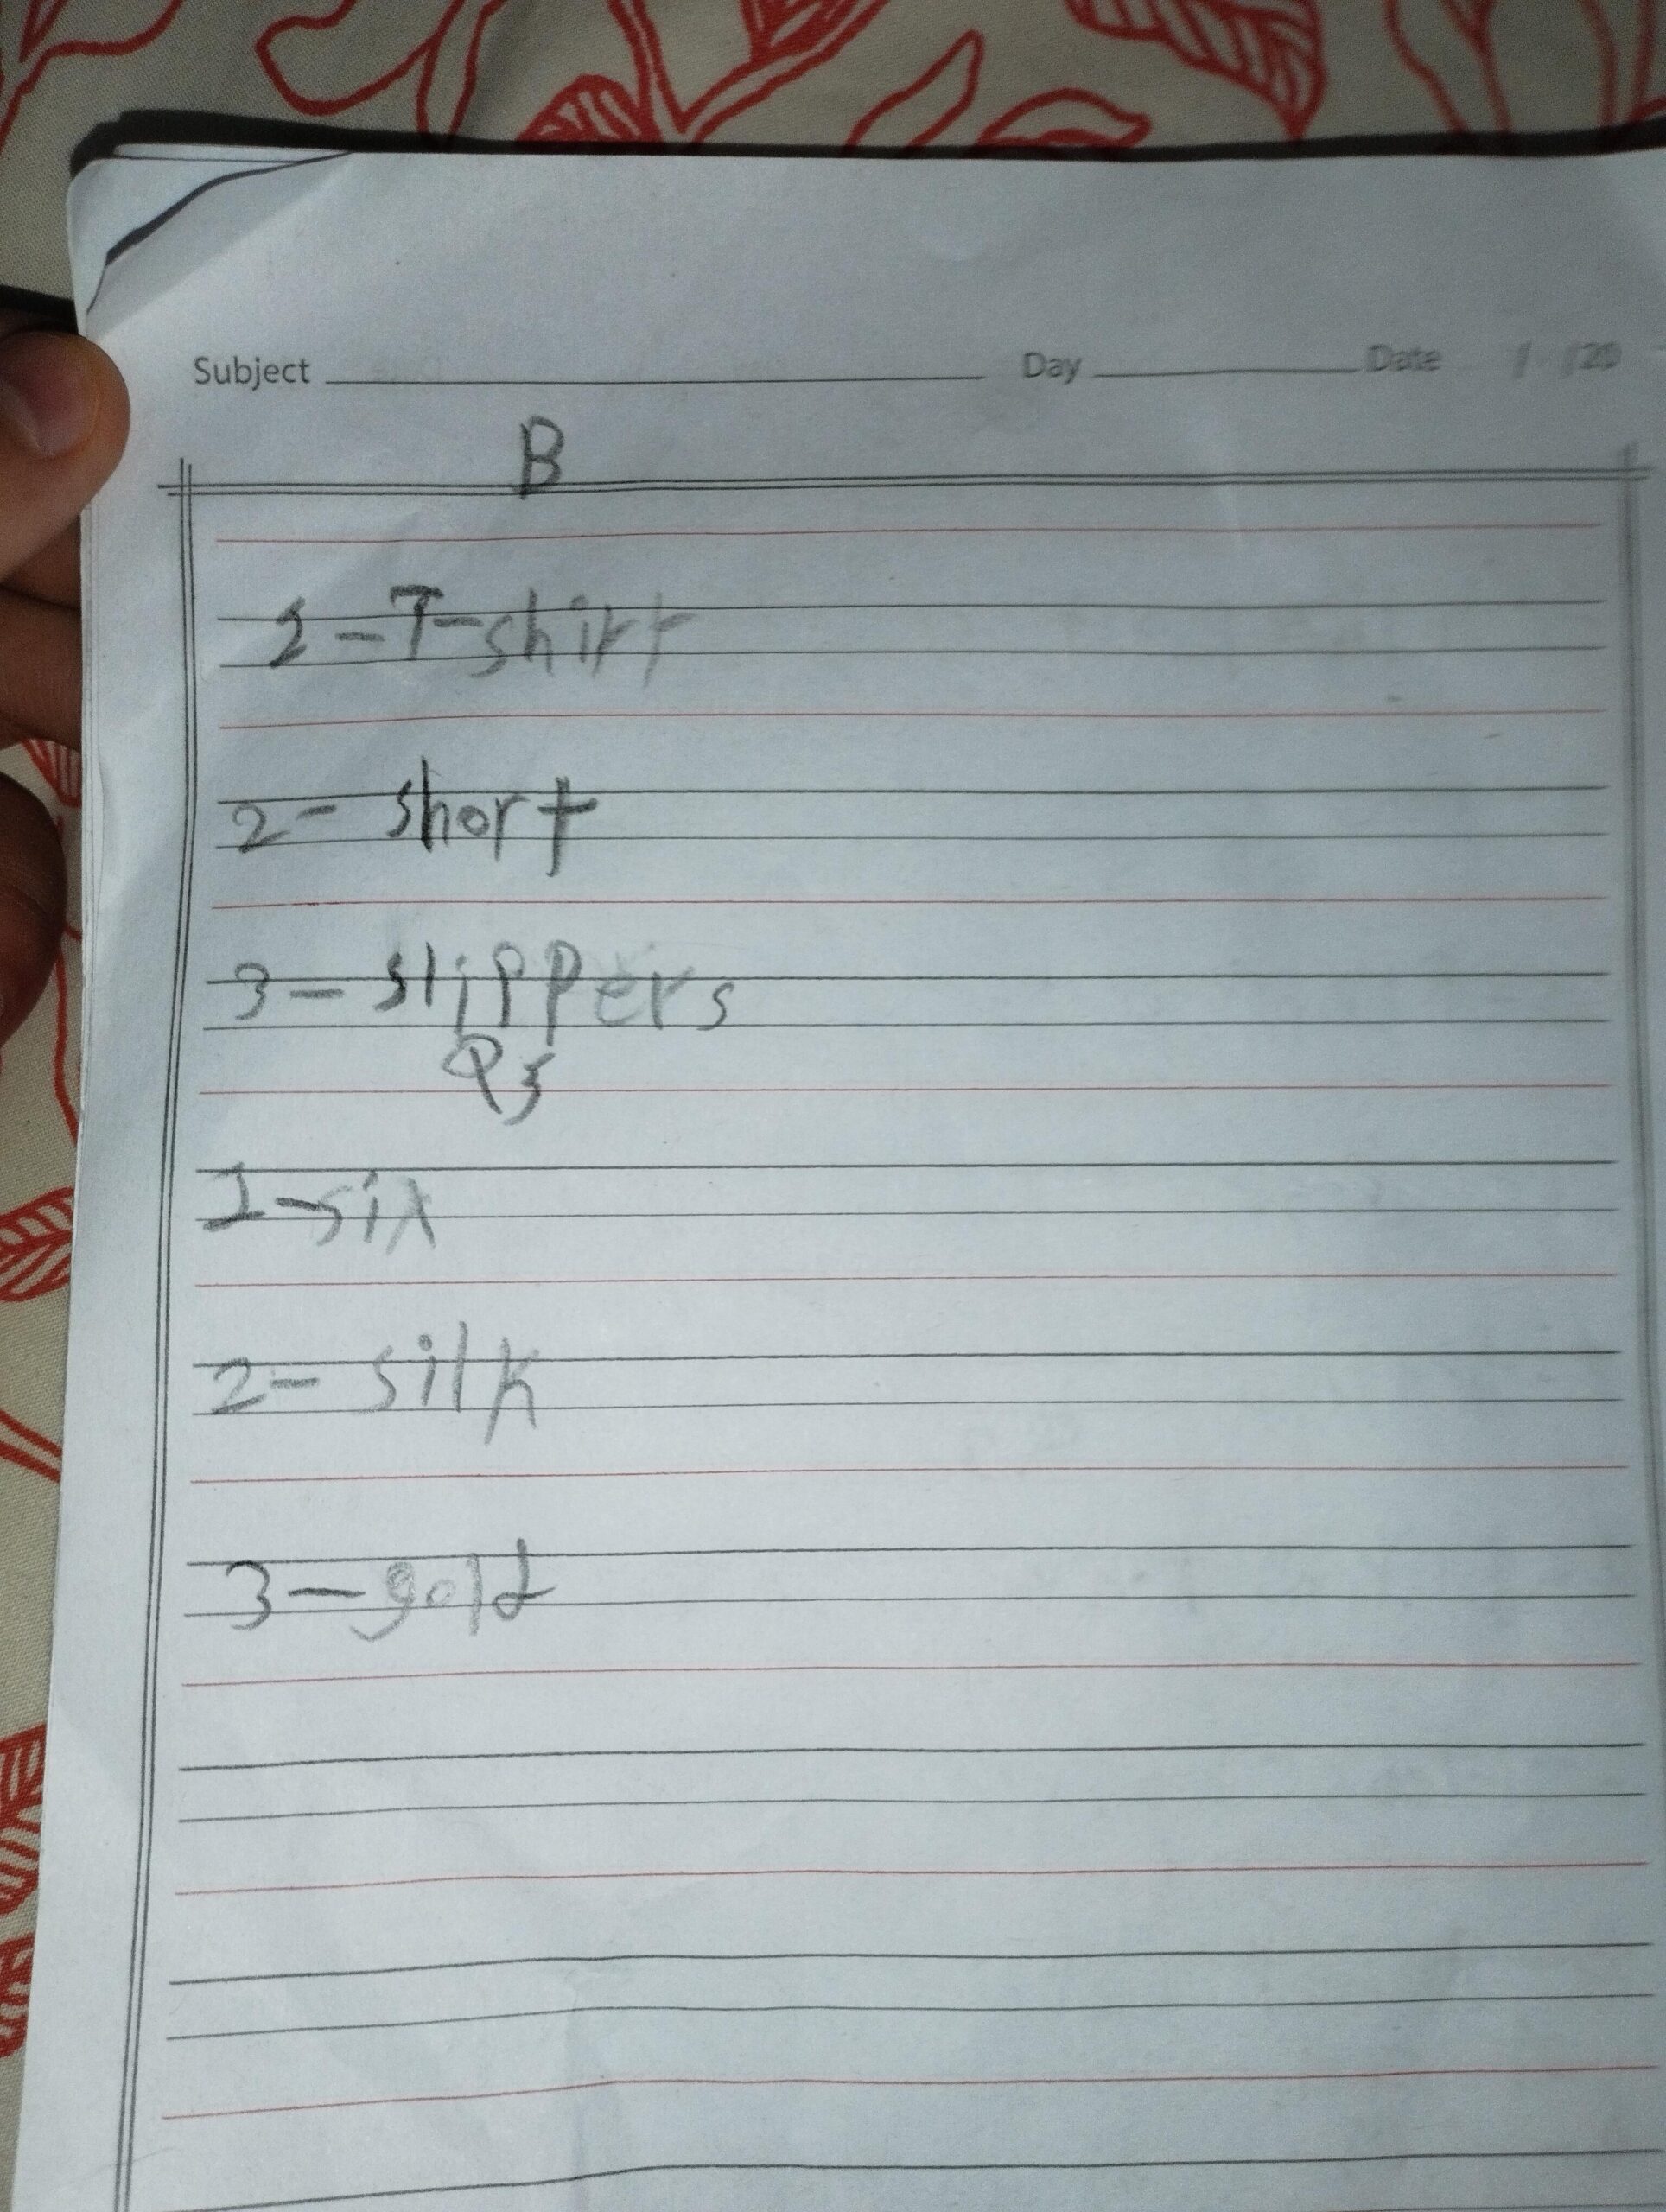 Subject Day Date / /20
B
2-T-shirt
2- short
3- slippers
Q3
1-six
2- silk
3-gold